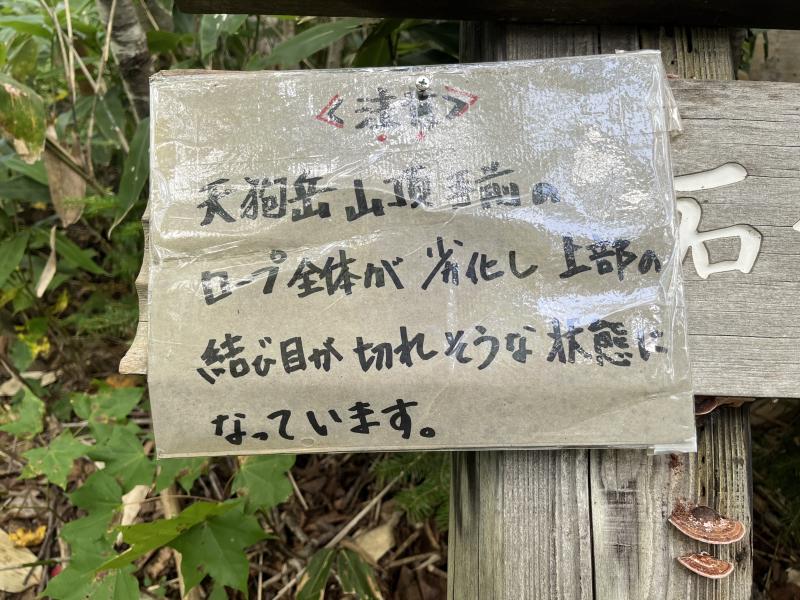 <注意>
天狗岳山頂手前の
ロープ全体が劣化し上部の
結び目が切れそうな状態に
なっています。
石